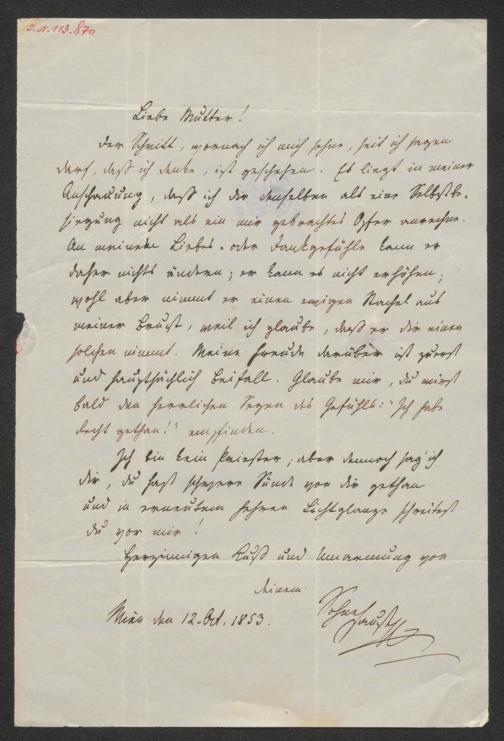 J.N. 113.870
Liebe Mutter!
Der Schritt, wornach ich mich sehne, seit ich sagen
darf, daß ich denke, ist geschehen. Es liegt in meiner
Anschauung, daß ich dir denselben als eine Selbstbe-
siegung nicht als ein mir gebrachtes Opfer anrechne.
An meinem Liebes- oder Dankgefühle kann er
daher nichts ändern; er kann es nicht erhöhen;
wohl aber nimmt er einen ewigen Stachel aus
meiner Brust, weil ich glaube, daß er dir einen
solchen nimmt. Meine Freude darüber ist zuerst
und hauptsächlich Beifall. Glaube mir, du wirst
bald den herrlichen Segen des Gefühls: "Ich habe
Recht gethan!" empfinden.
Ich bin kein Priester; aber dennoch sag' ich
dir, du hast schwere Sünde von dir gethan
und in erneutem hehren Lichtglanze schreitest
du vor mir!
Herzinnigen Kuß und Umarmung von
deinem
Wien den 12. Oct. 1853. Sohne
Faust